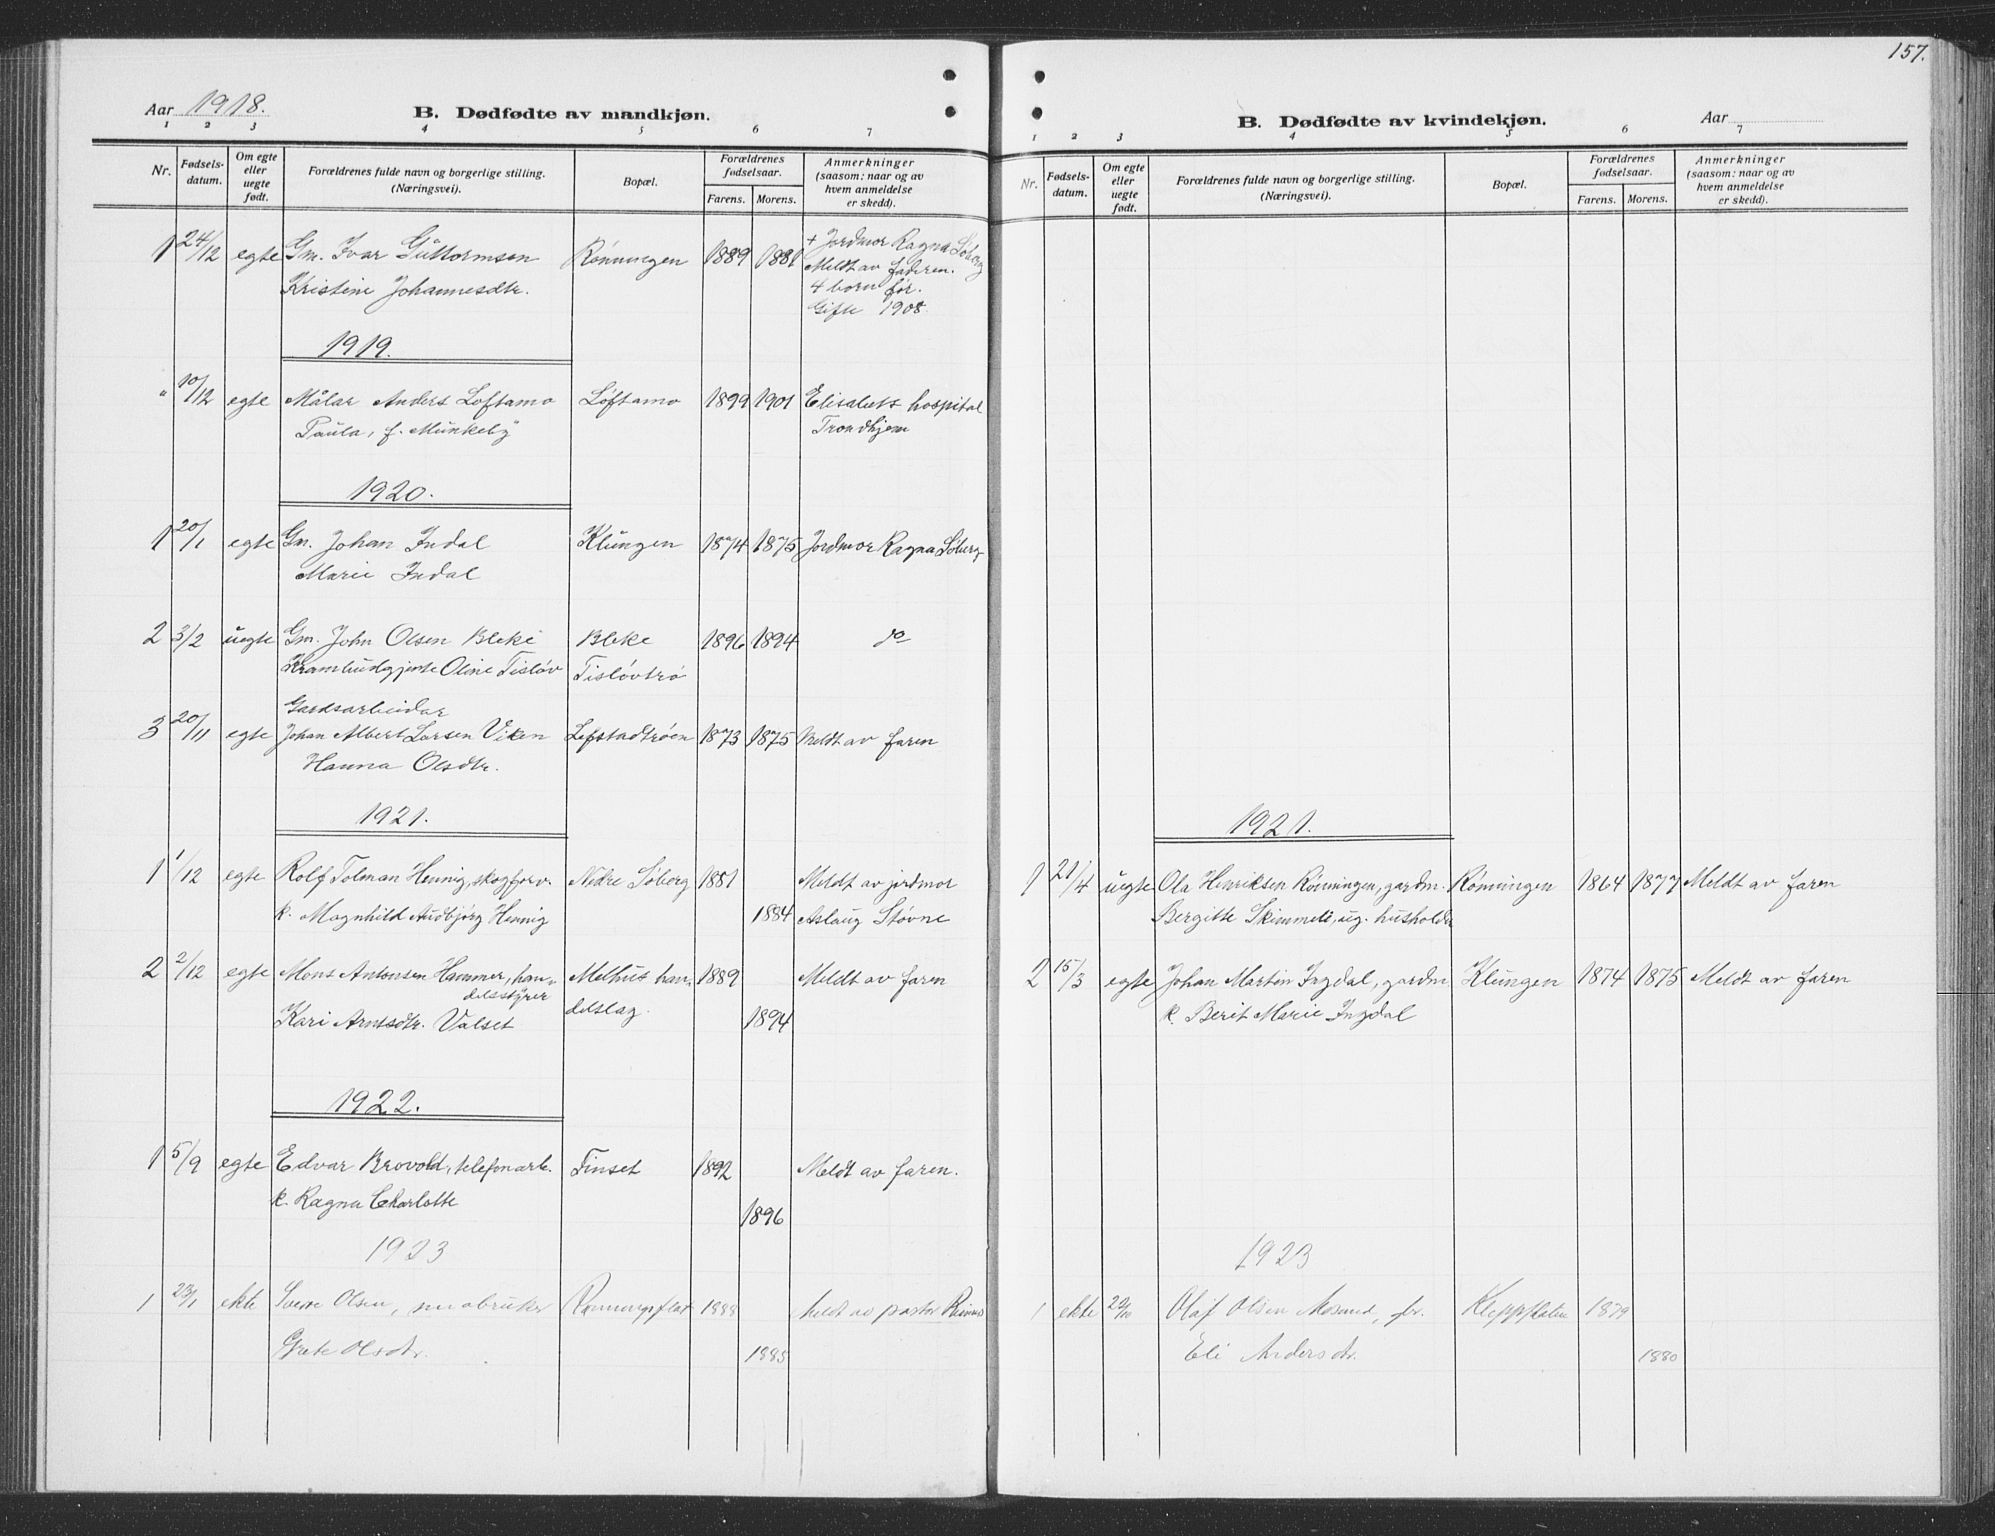 157.
Aar 1918.
B. Dødfødte av mandkjøn.
1 2 3 4 5 6 7
Nr.
Fødsels-
datum.
Om egte
eller
uegte
født.
Forældrenes fulde navn og borgerlige stilling.
(Næringsvei).
Bopæl.
Forældrenes
fødselsaar.
Farens. Morens.
Anmerkninger
(saasom: naar og av
hvem anmeldelse
er skedd).
1 24/12 egte Gm. Ivar Guttormsen Rönningen 1889 1881 + Jordmor Ragna Söberg
Meldt av faderen.
Kristine Johannesdtr. 4 born før.
Gifte 1908
1919.
" 10/12 egte Målar Anders Loftamo Löftamo 1899 1901 Elisabets hospital
Paula, f. Munkeby Trondhjem
1920.
1 20/1 egte Gm. Johan Indal Klungen 1874 1875 Jordmor Ragna Söberg
Marie Indal
2 3/2 uegte Gm. John Olsen Bleke Bleke 1896 1894 do
Krambudgjente Oline Tislöv Tislövtrö
Gardsarbeidar
3 20/11 egte Johan Albert Larsen Viken Lefstadtröen 1873 1875 Meldt av faren
Hanna Olsdtr.
1921.
1 1/12 egte Rolf Tolman Hennig, skogforv. Nedre Söberg 1881 Meldt av jordmor
k. Magnhild Audbjörg Hennig 1884 Aslaug Stövne
2 2/12 egte Mons Antonsen Hammer, han- Melhus han- 1889 Meldt av faren
delsstyrer delslag.
Kari Arntsdtr. Valset 1894
1922.
1 5/9 egte Edvar Brovold, telefonarb. Tinset 1892 Meldt av faren.
k. Ragna Charlotte 1896
1923
1 23/1 ekte Olsen, Rönningsflat 1888 Meldt av pastor
Grete Olsdtr. 1885
B. Dødfødte av kvindekjøn.
Aar
1 2 3 4 5 6 7
Nr.
Fødsels-
datum.
Om egte
eller
uegte
født.
Forældrenes fulde navn og borgerlige stilling.
(Næringsvei).
Bopæl.
Forældrenes
fødselsaar.
Farens. Morens.
Anmerkninger
(saasom: naar og av
hvem anmeldelse
er skedd).
1921.
1 21/4 uegte Ola Henriksen Rönningen, gardm. Rönningen 1864 1877 Meldt av faren
Bergitte Skimmeli, ug. husholde
2 15/3 egte Johan Martin Ingdal, gardm Klungen 1874 1875 Meldt av faren
k. Berit Marie Ingdal
1923
1 ekte 20/10 Olaf Olsen Kleppflaten 1879
Eli Andersdtr. 1880